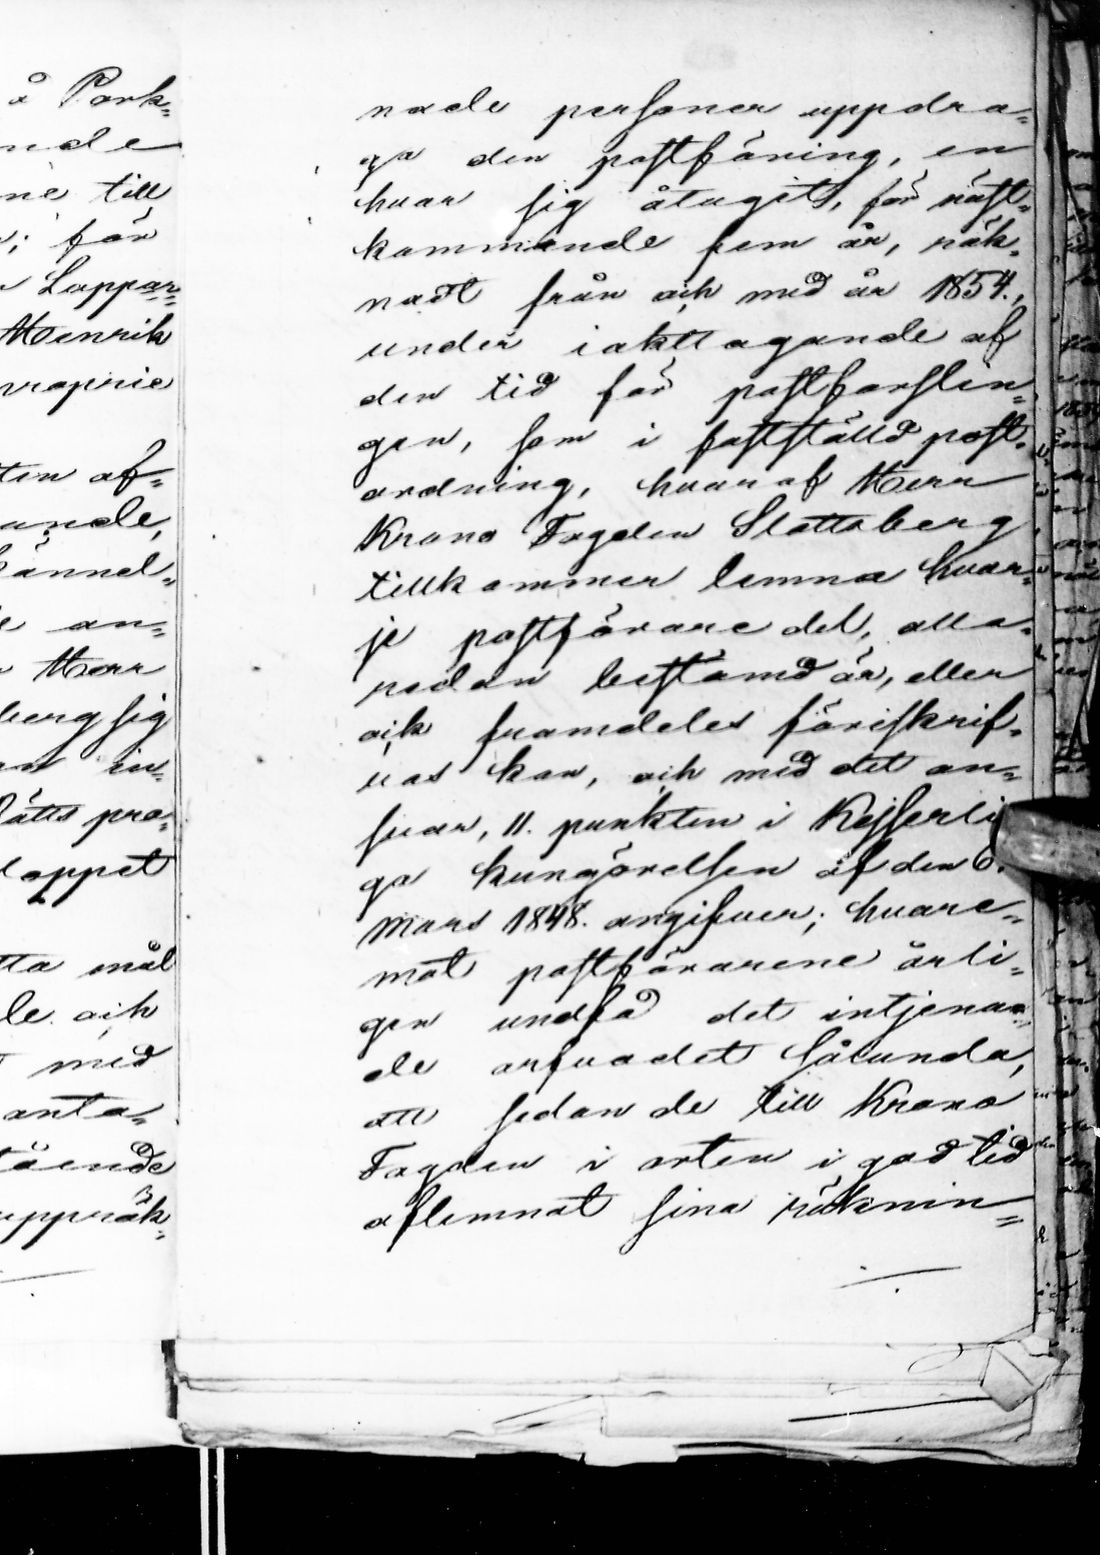 å Pork-
nde
ne till
för
Lappar-
Henrik
propric
ten af-
ande,
känned-
an-
Herr
berg sig
in-
Rätts pro-
loppet
tta mål
le och
med
anta-
tående
uppräk-
nade personer uppdra-
ga den postföring, en
hvar sig åtagit, för näst-
kommande fem år, räk-
nadt från och med år 1854.,
under iakttagande af
den tid för postforslin-
gen, som i fastställd post-
ordning, hvaraf Herr
Krono Fogden Slottsberg
tillkommer lemna hvar-
je postförare del, alla-
redan bestämd är, eller
och framdeles föriskrif-
vas kan, och med det an-
svar, 11. punkten i Kejserli
ga kungörelsen af den 6.
Mars 1848. angifver; hvare-
mot postförarene årli-
gen undfå det intjenan-
de arfvodet sålunda,
att sedan de till Krono
Fogden i orten i god tid
aflemnat sina räknin-